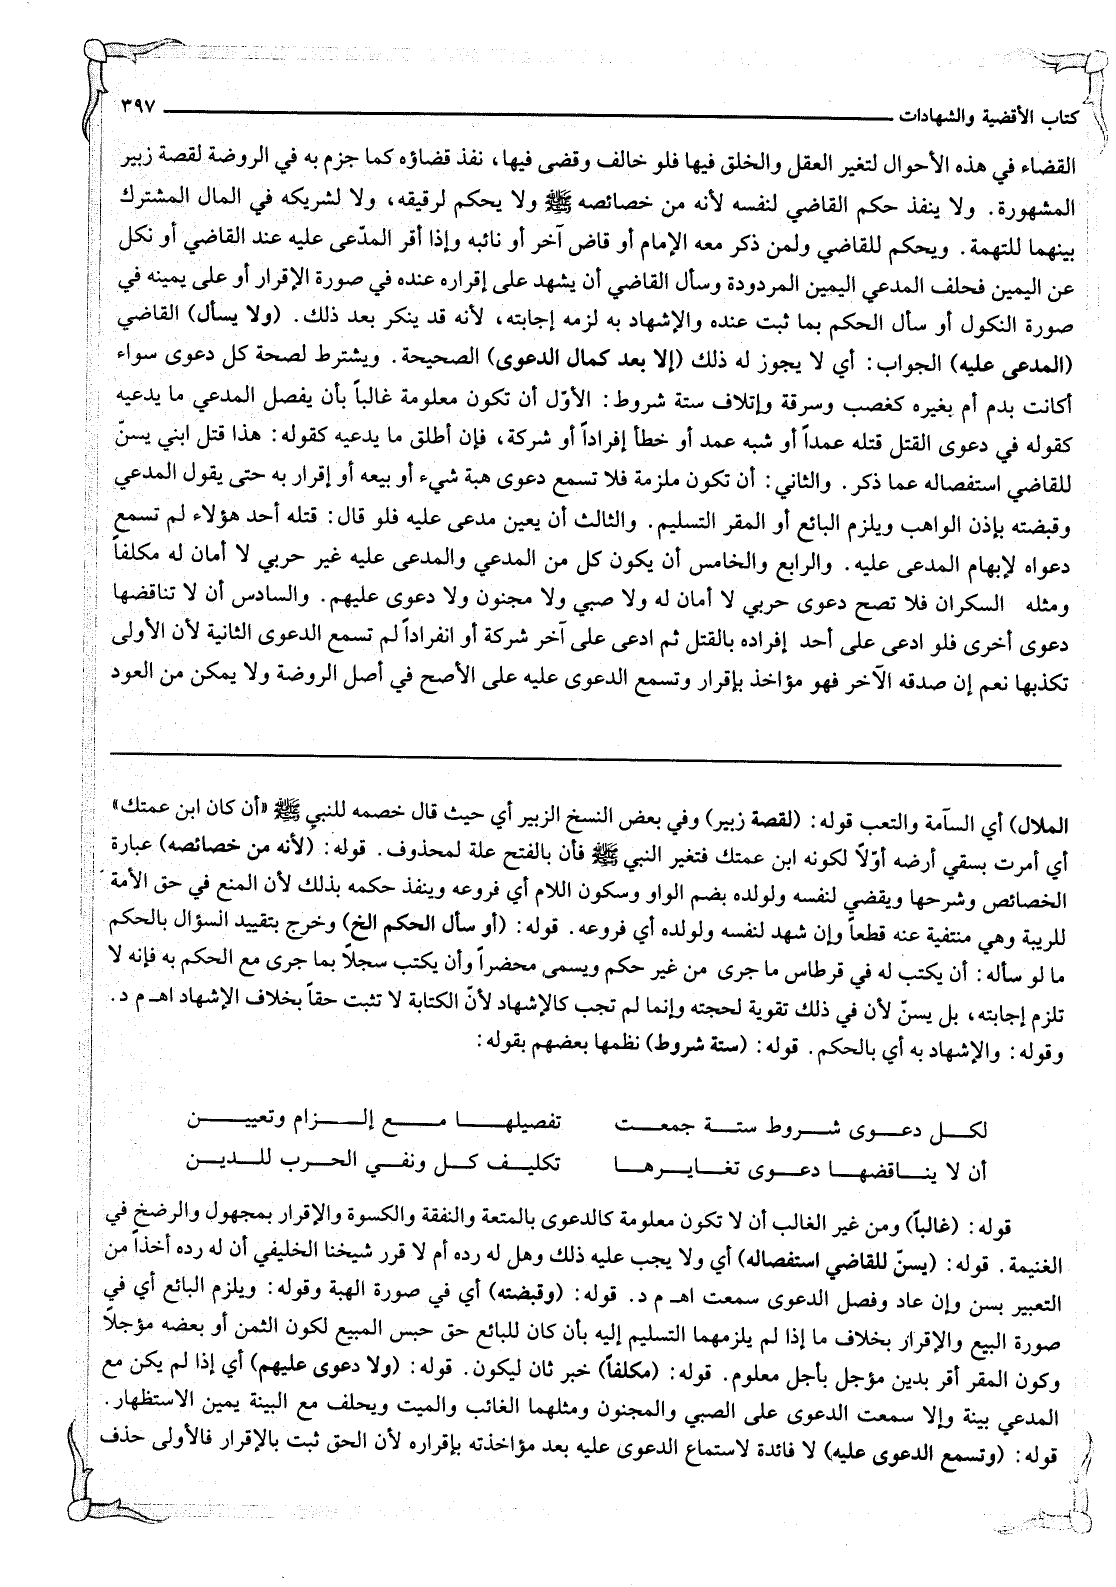 كتاب الأقضية والشهادات ٣٩٧
القضاء في هذه الأحوال لتغير العقل والخلق فيها فلو خالف وقضى فيها، نفذ قضاؤه كما جزم به في الروضة لقصة زبير
المشهورة. ولا ينفذ حكم القاضي لنفسه لأنه من خصائصه ﷺ ولا يحكم لرقيقه، ولا لشريكه في المال المشترك
بينهما للتهمة. ويحكم للقاضي ولمن ذكر معه الإمام أو قاض آخر أو نائبه وإذا أقر المدّعى عليه عند القاضي أو نكل
عن اليمين فحلف المدعي اليمين المردودة وسأل القاضي أن يشهد على إقراره عنده في صورة الإقرار أو على يمينه في
صورة النكول أو سأل الحكم بما ثبت عنده والإشهاد به لزمه إجابته، لأنه قد ينكر بعد ذلك. (ولا يسأل) القاضي
(المدعى عليه) الجواب: أي لا يجوز له ذلك (إلا بعد كمال الدعوى) الصحيحة. ويشترط لصحة كل دعوى سواء
أكانت بدم أم بغيره كغصب وسرقة وإتلاف ستة شروط: الأوّل أن تكون معلومة غالباً بأن يفصل المدعي ما يدعيه
كقوله في دعوى القتل قتله عمداً أو شبه عمد أو خطأ إفراداً أو شركة، فإن أطلق ما يدعيه كقوله: هذا قتل ابني يسنّ
للقاضي استفصاله عما ذكر. والثاني: أن تكون ملزمة فلا تسمع دعوى هبة شيء أو بيعه أو إقرار به حتى يقول المدعي
وقبضته بإذن الواهب ويلزم البائع أو المقر التسليم. والثالث أن يعين مدعى عليه فلو قال: قتله أحد هؤلاء لم تسمع
دعواه لإبهام المدعى عليه. والرابع والخامس أن يكون كل من المدعي والمدعى عليه غير حربي لا أمان له مكلفاً
ومثله السكران فلا تصح دعوى حربي لا أمان له ولا صبي ولا مجنون ولا دعوى عليهم. والسادس أن لا تناقضها
دعوى أخرى فلو ادعى على أحد إفراده بالقتل ثم ادعى على آخر شركة أو انفراداً لم تسمع الدعوى الثانية لأن الأولى
تكذبها نعم إن صدقه الآخر فهو مؤاخذ بإقرار وتسمع الدعوى عليه على الأصح في أصل الروضة ولا يمكن من العود
الملال) أي السآمة والتعب قوله: (لقصة زبير) وفي بعض النسخ الزبير أي حيث قال خصمه للنبي ﷺ «أن كان ابن عمتك»
أي أمرت بسقي أرضه أوّلاً لكونه ابن عمتك فتغير النبي ﷺ فأن بالفتح علة لمحذوف. قوله: (لأنه من خصائصه) عبارة
الخصائص وشرحها ويقضي لنفسه ولولده بضم الواو وسكون اللام أي فروعه وينفذ حكمه بذلك لأن المنع في حق الأمة
للريبة وهي منتفية عنه قطعاً وإن شهد لنفسه ولولده أي فروعه. قوله: (أو سأل الحكم الخ) وخرج بتقييد السؤال بالحكم
ما لو سأله: أن يكتب له في قرطاس ما جرى من غير حكم ويسمى محضراً وأن يكتب سجلاً بما جرى مع الحكم به فإنه لا
تلزم إجابته، بل يسنّ لأن في ذلك تقوية لحجته وإنما لم تجب كالإشهاد لأنّ الكتابة لا تثبت حقاً بخلاف الإشهاد اهـ م د.
وقوله: والإشهاد به أي بالحكم. قوله: (ستة شروط) نظمها بعضهم بقوله:
لكل دعوى شروط ستة جمعت تفصيلها مع إلزام وتعيين
أن لا يناقضها دعوى تغايرها تكليف كل ونفي الحرب للدين
قوله: (غالباً) ومن غير الغالب أن لا تكون معلومة كالدعوى بالمتعة والنفقة والكسوة والإقرار بمجهول والرضخ في
الغنيمة. قوله: (يسنّ للقاضي استفصاله) أي ولا يجب عليه ذلك وهل له رده أم لا قرر شيخنا الخليفي أن له رده أخذاً من
التعبير بسن وإن عاد وفصل الدعوى سمعت اهـ م د. قوله: (وقبضته) أي في صورة الهبة وقوله: ويلزم البائع أي في
صورة البيع والإقرار بخلاف ما إذا لم يلزمهما التسليم إليه بأن كان للبائع حق حبس المبيع لكون الثمن أو بعضه مؤجلاً
وكون المقر أقر بدين مؤجل بأجل معلوم. قوله: (مكلفاً) خبر ثان ليكون. قوله: (ولا دعوى عليهم) أي إذا لم يكن مع
المدعي بينة وإلا سمعت الدعوى على الصبي والمجنون ومثلهما الغائب والميت ويحلف مع البينة يمين الاستظهار.
قوله: (وتسمع الدعوى عليه) لا فائدة لاستماع الدعوى عليه بعد مؤاخذته بإقراره لأن الحق ثبت بالإقرار فالأولى حذف